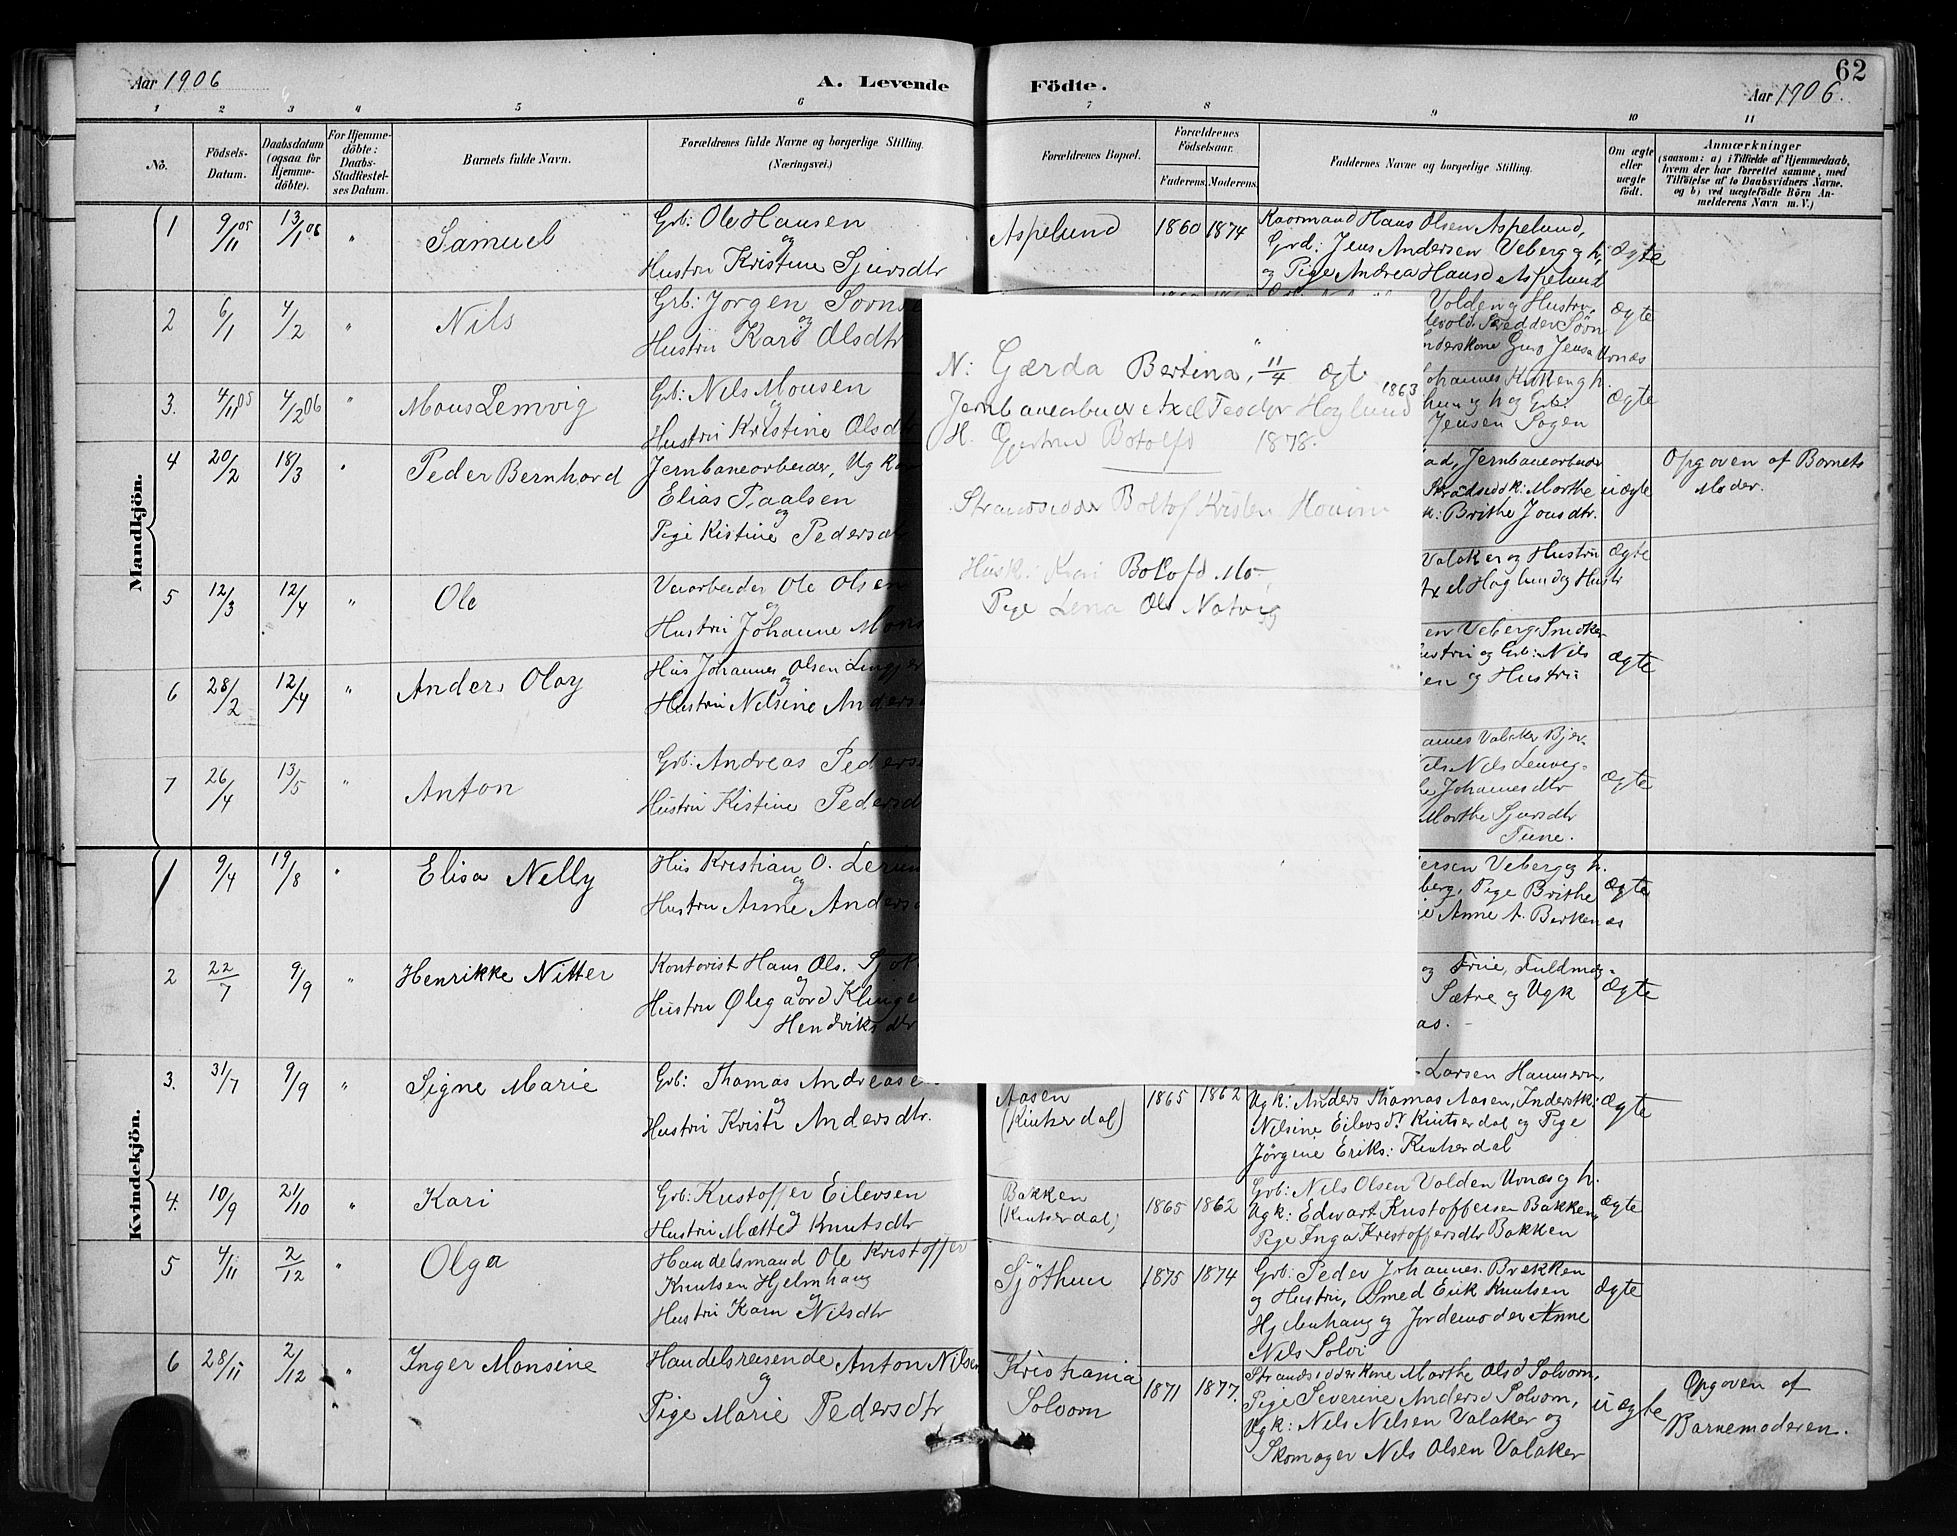 Aar 1906
A. Levende
Födte.
62
Aar 1906.
1 2 3 4 5 6 7 8 9 10 11
No.
Födsels-Datum.
Daabsdatum (ogsaa for Hjemme-döbte).
For Hjemme-döbte: Daabs-Stadfæstel-ses Datum.
Barnets fulde Navn.
Forældrenes fulde Navne og borgerlige Stilling. (Næringsvei.)
Forældrenes Bopæl.
Forældrenes Födselsaar.
Faderens. Moderens.
Faddernes Navne og borgerlige Stilling.
Om ægte eller uægte födt.
Anmærkninger
(saasom: a) i Tilfælde af Hjemmedaab,
hvem der har forrettet samme, med
Tilföielse af to Daabsvidners Navne.
og b) ved uægtefödte Börn An-
melderens Navn m. V.)
Mandkjön.
1 9/11 05 13/1 06 " Samuel
Grb: Ole Hansen
og
Hustru Kristine Sjursdtr
Aspelund 1860 1874
Kaarmand Hans Olsen Aspelund,
Grd: Jens Andersen Veberg og h.
og Pige Andrea Hansd Aspelund
ægte
2 6/1 4/2 " Nils
Grb: Jørgen
og
Hustru Kari Olsdtr
Volden og Hustru,
ægte
3. 4/11 05 4/2 06 " Mons Lemvig
Grb: Nils Monsen
og
Hustru Kristine Olsdt
Jensen Sogen
ægte
4 20/2 18/3 " Peder Bernhard
Jernbanearbeider, Ugk
Elias Paalsen
og
Pige Kistine Pedersdtr
Jernbanearbeider
Morthe
k: Brithe Jonsdtr.
uægte
Opgaven af Barnets
Moder.
5 12/3 12/4 " Ole
Veiarbeider Ole Olsen
og
Hustru Johanne
Valaker og Hustru
Axel Høglund og Hustr
ægte
6 28/2 12/4 " Anders Olay
Hus Johannes Olsen
og
Hustru Nilsine Anders
en Veberg
Hustru og Grb: Nils
en og Hustru
ægte
7 26/4 13/5 " Anton
Grb: Andreas Peders
og
Hustru Kistine Pedersd
Valaker
Nils
Johannesdtr
Morthe Sjursdtr
ægte
Kvindekjön.
1 9/4 19/8 " Elisa Nelly
Hus Kristian O.
og
Hustru Anne Anders
ersen Veberg og h.
berg, Pige Brithe
Anne A. Berkenæs
ægte
2 22/7 9/9 " Henrikke Nitter
Kontorist Hans Ols.
og
Hustru Øleg aard Klinge
Hendriksdtr
og Frue, Fuldmæg-
Sætre og Ugk
ægte
3. 31/7 9/9 " Signe Marie
Grb: Thomas Andreasen
og
Hustru Kristi Andersdtr.
Aasen
(Kinserdal)
1865 1862
Larsen
Ugk: Anders Thomas Aasen, Inderstk:
Nilsine Eilevsd Kintserdal og Pige
Jörgine Eriks: Kinserdal
ægte
4. 10/9 21/10 " Kari
Grb: Kristoffer Eilevsen
og
Hustru Mætte Knutsdtr
Bakken
(Kintserdal)
1865 1862
Grb: Nils Olsen Volden Urnæs og h.
Ugk: Edvart Kristoffersen Bakken,
Pige Inga Kristoffersdtr Bakken
ægte
5 4/11 2/12 " Olga
Handelsmand Ole Kristoffer
Knutsen Hjelmhaug
og
Hustru Karn Nilsdtr
Sjöthun 1875 1874
Grb: Peder Johannes. Brækken
og Hustru, Smed Erik Knutsen
Hjelmhaug og Jordemoder Anne
Nils Solvi
ægte
6 28/11 2/12 " Inger Monsine
Handelsreisende Anton Nilsen
og
Pige Marie Pedersdtr
Kristiania
Solvorn
1871 1877.
Strandsidderkone Morthe Olsd Solvorn,
Pige Severine Andersd Solvorn,
Ugk: Nils Nilsen Valaker og
Skomager Nils Olsen Valaker
uægte
Opgaven af
Barnemoderen.
N: Gærda Bertina, 11/4 ægt.
1863
Jernbanearbeider Axel Teodor Høglund
H. Gjertrud Botolfd 1878.
Strandsidder Boltof Kristen
Husk: Kari Botofd Mo-
Pige Lena Ols Natvig